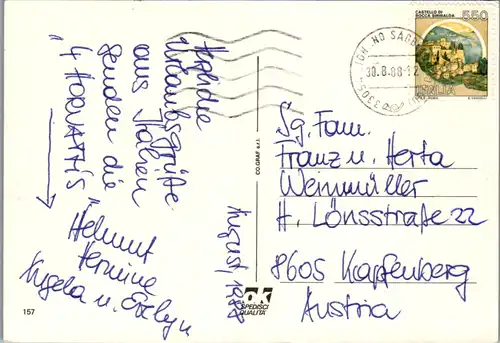 Herzliche
Urlaubsgrüße
aus Italien
senden die
"4 HORVATH'S"
Helmut
Hermine
Angela u. Evelyn
August, 1988
Sg. Fam.
Franz u. Herta
Weinmüller
H. Lönsstraße 22
8605 Kapfenberg
Austria
CASTELLO DI
ROCCA SINIBALDA
550
ITALIA
30.8.88-12
CO.GRAF s.r.l.
SPEDISCI
QUALITÀ
157